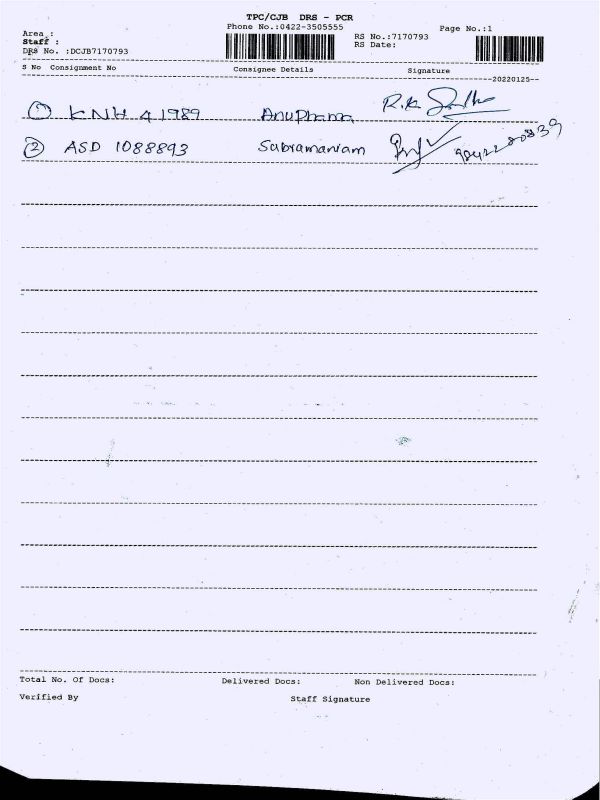 TPC/CJB DRS - PCR
Phone No.:0422-3505555
Page No.:1
Area :
RS No.:7170793
Staff :
RS Date:
DRS No. :DCJB7170793
S No Consignment No Consignee Details Signature
20220125
1 KNH 41989 Anuphama R.K
2 ASD 1088893 Subramaniam 9842280839
Total No. Of Docs: Delivered Docs: Non Delivered Docs:
Verified By Staff Signature